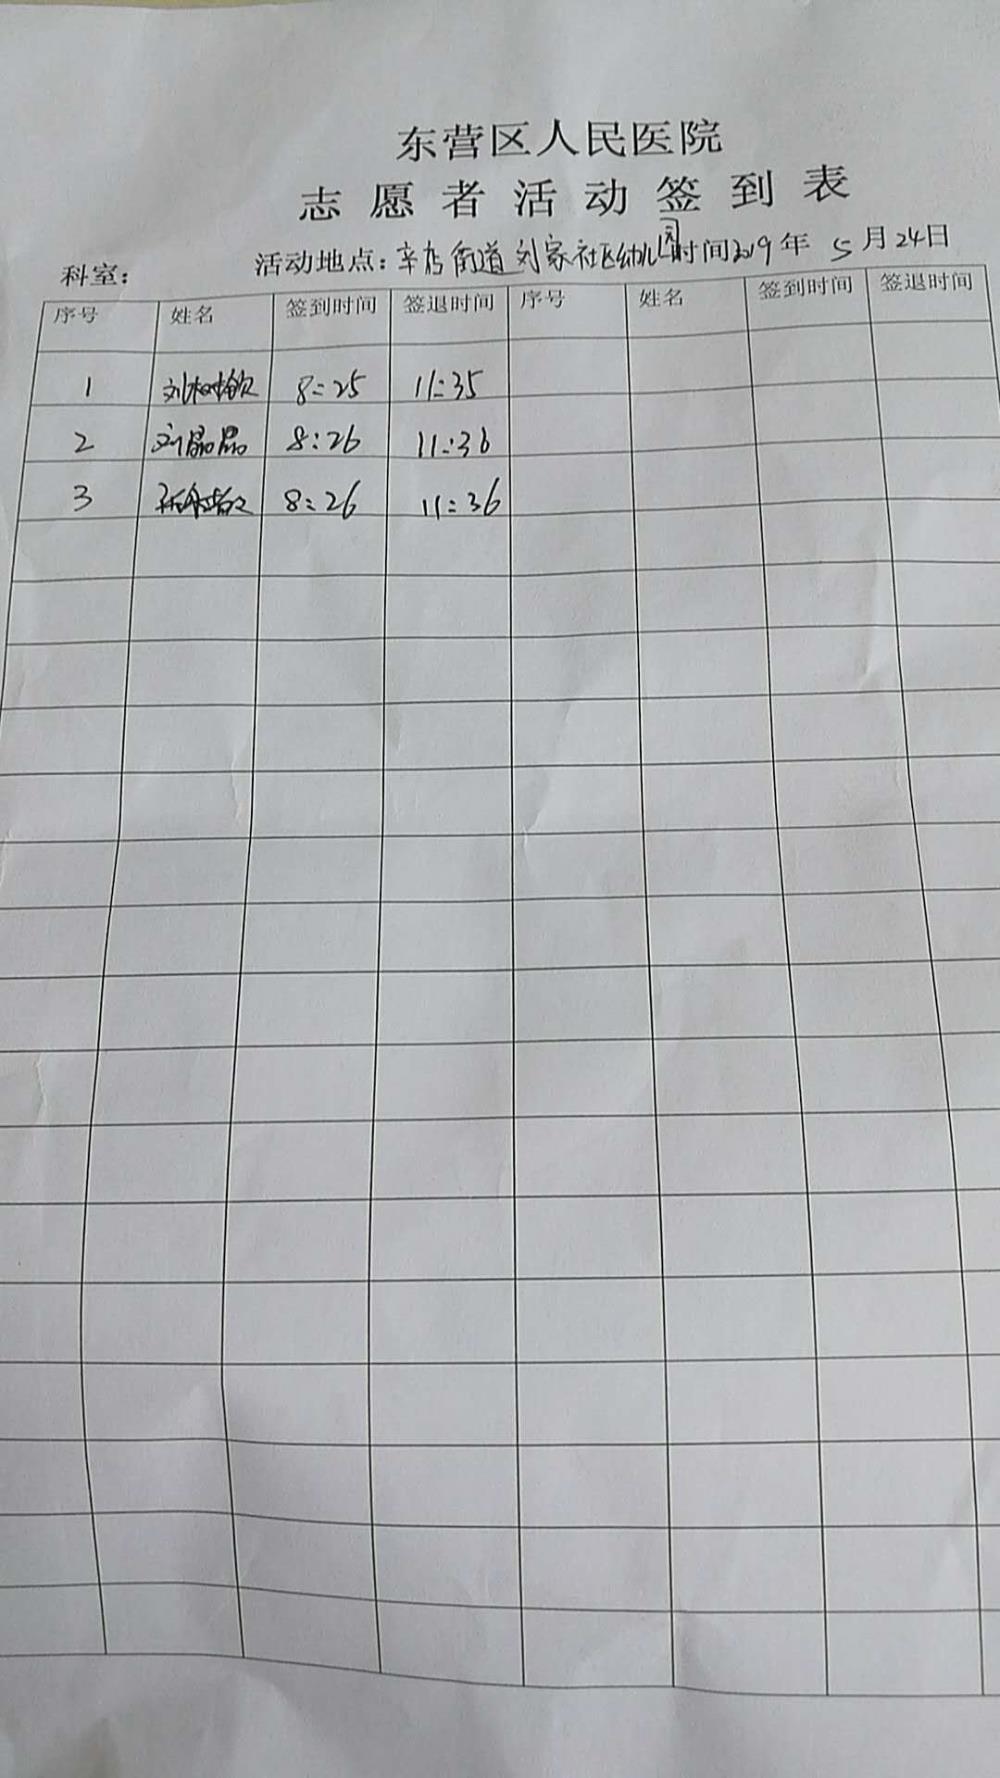 东营区人民医院
志愿者活动签到表
科室： 活动地点：辛店街道刘家社区幼儿园 时间2019年 5月24日
序号 姓名 签到时间 签退时间 序号 姓名 签到时间 签退时间
1 8:25 11:35
2 刘晶晶 8:26 11:36
3 8:26 11:36